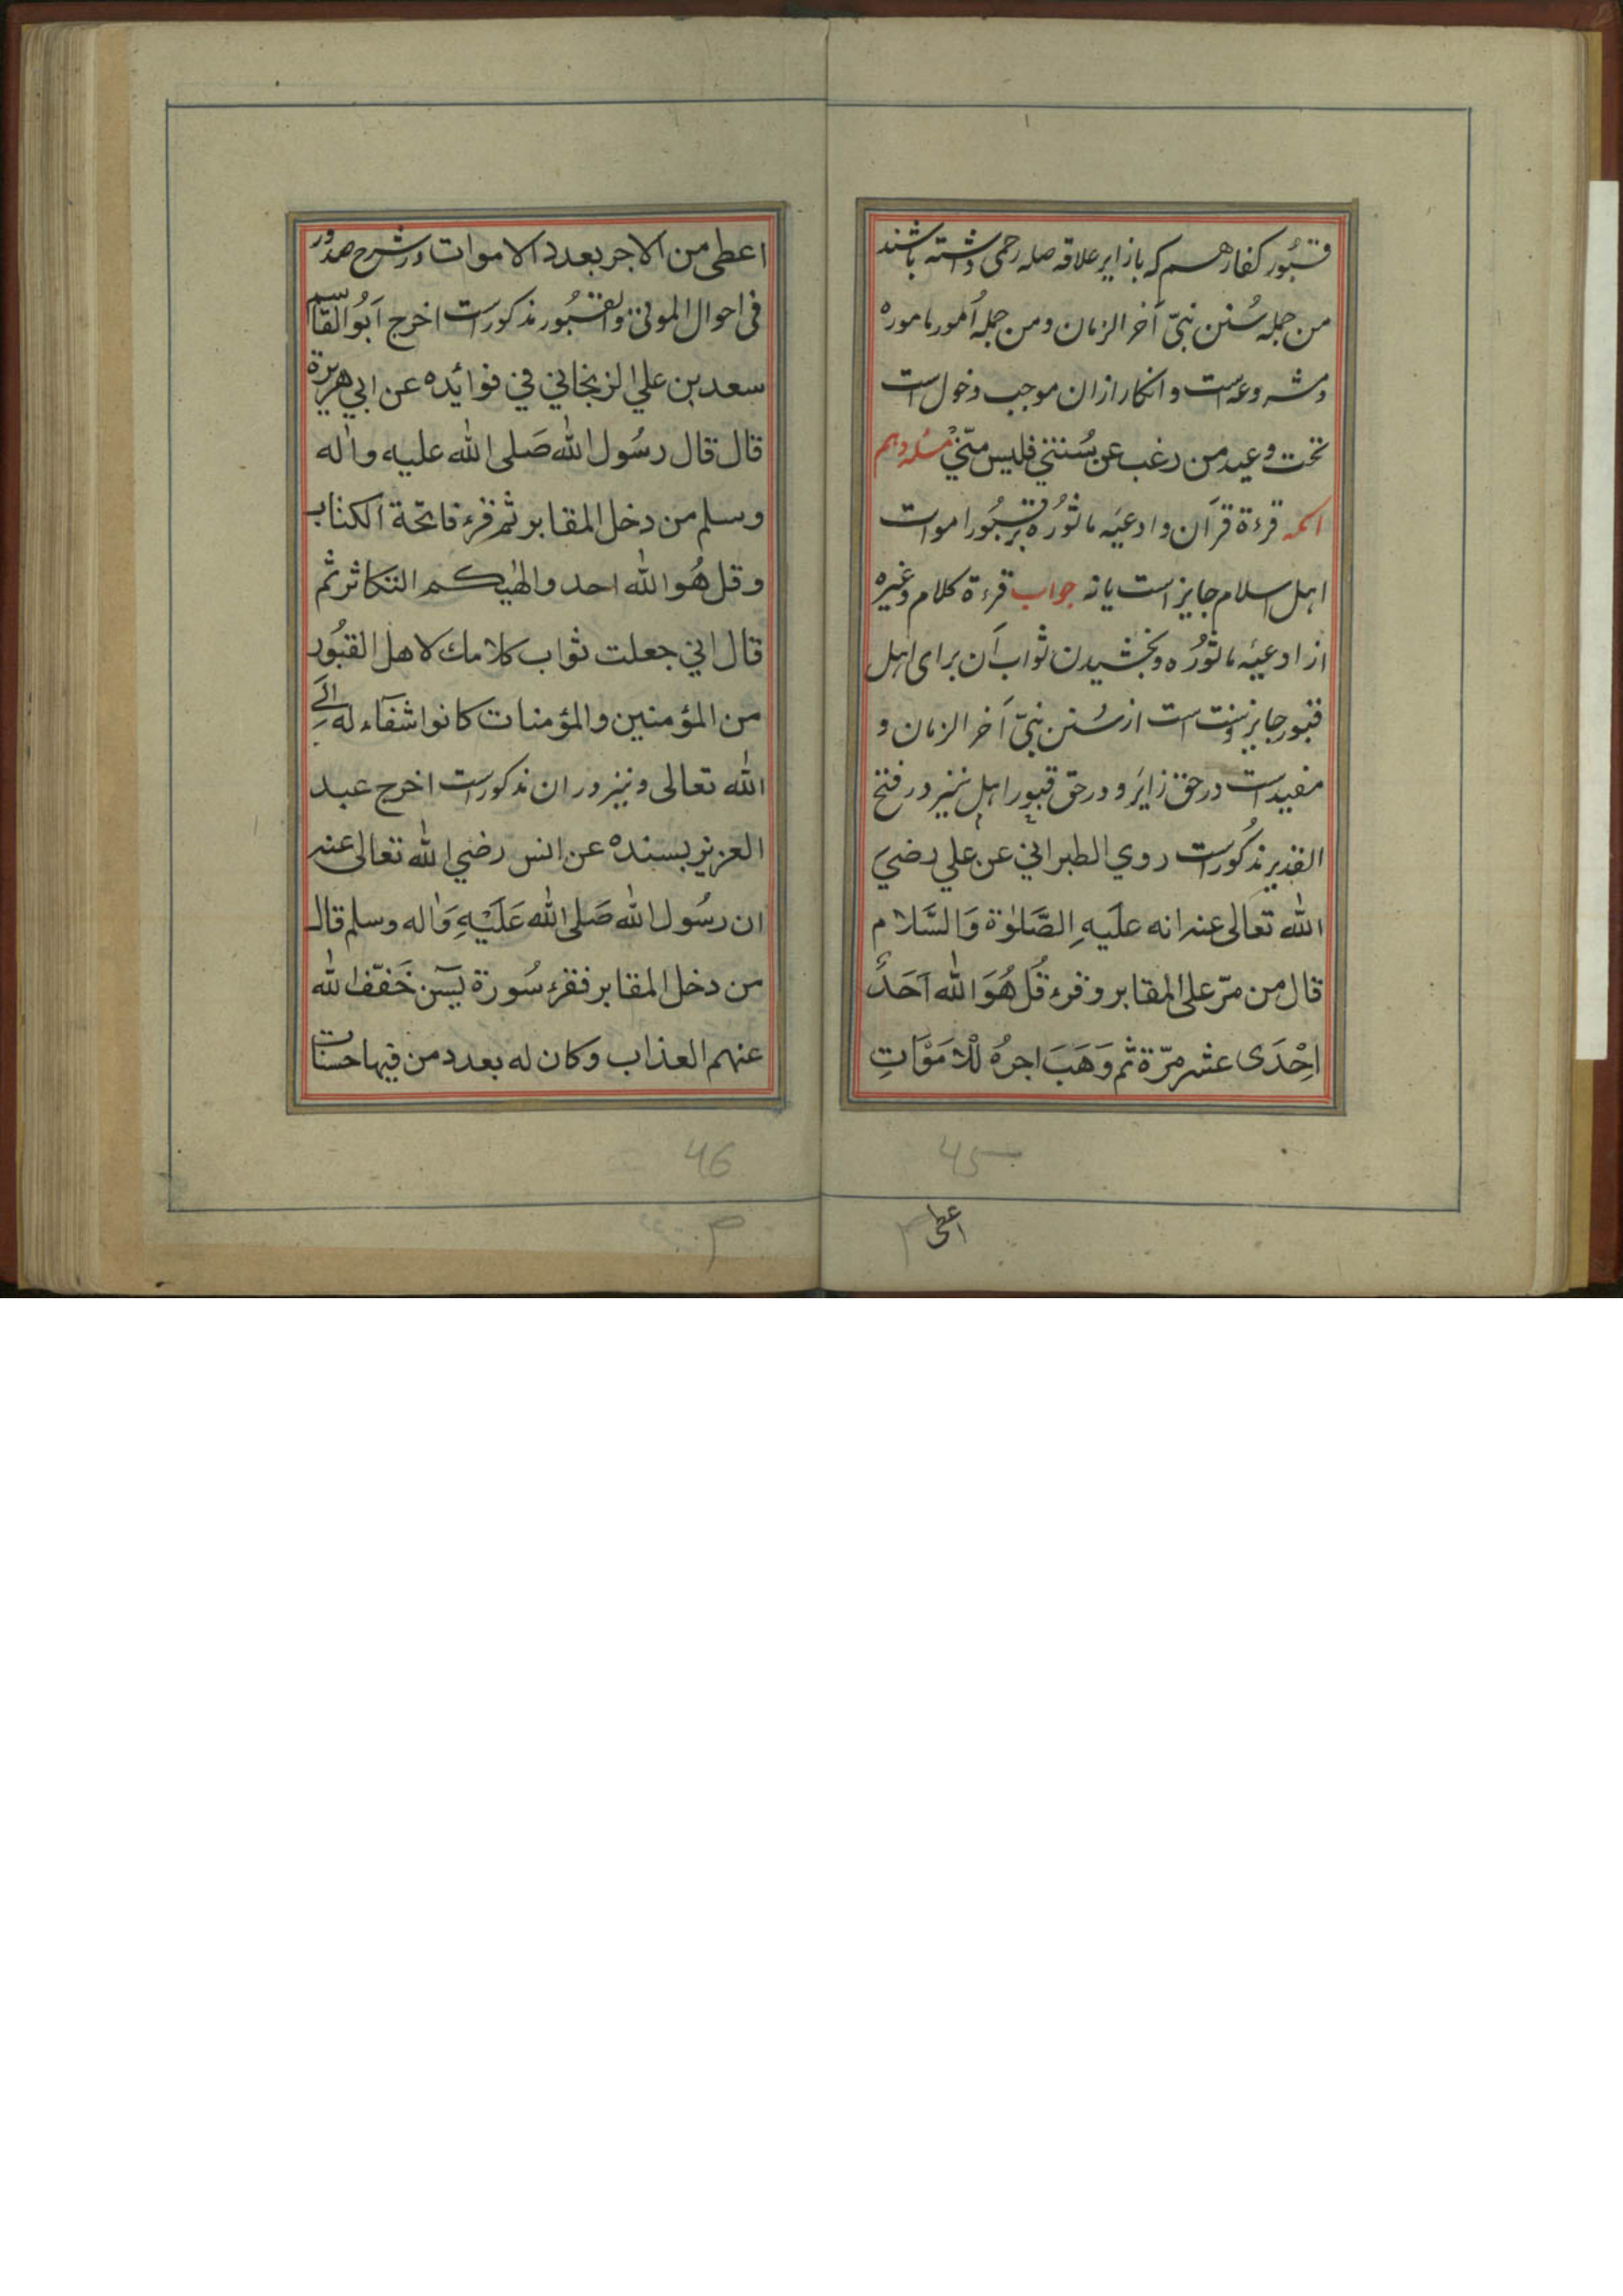 قبُور کفار هم که با زایر علاقه صله رحمی داشته باشند
من جمله سُنن نبیّ آخر الزمان ومن جمله اُمور ماموره
ومشروعه است وانکار ازان موجب دخول است
تحت وعید من رغب عن سُنتي فليس منّي مسئله دهم
آنکه قرءة قرآن وادعیَه ماثورُه بر قبُور اموات
اہل اسلام جایز است یا نه جواب قرءة کلام وغیره
از ادعیَه ماثورُه وبخشیدن ثواب آن برای اہل
قبور جایز وسنت است از سُنن نبیّ آخر الزمان و
مفید است در حق زایَر و در حق قبور اہل نیز در فتح
القدیر مذکُور است روي الطبراني عن علي رضي
الله تعالى عنه انه علَيهِ الصَّلوٰة وَالسَّلام
قال من مرّ على المقابر وقرء قُل هُوَ الله اَحَدٌ
اِحْدَى عشر مرّة ثم وَهَبَ اجرهُ لْلامَوْاتِ
اعطی
45
اعطى من الاجر بعدد الاموات در شرح صدُور
فی احوال الموتیٰ والقبُور مذکور است اخرج اَبُو القاسم
سعد بن علي الزنجاني في فوائده عن ابي هريرة
قال قال رسُول الله صَلى الله عليه واٰله
وسلم من دخل المقابر ثم قرء فاتحة الكتاب
وقل هُو الله احد والهٰيكم التكاثر ثم
قال اني جعلت ثواب كلامك لاهل القبُور
من المؤمنين والمؤمنات كانوا شفآء له الَي
الله تعالى ونیز در ان مذکور است اخرج عبد
العزيز بسنده عن انس رضي الله تعالى عنه
ان رسُول الله صَلى الله عَلَيْهِ وَاٰله وسلم قال
من دخل المقابر فقرء سُورة يسٓن خَفّف الله
عنهم العذاب وكان له بعدد من فيها حسنات
46